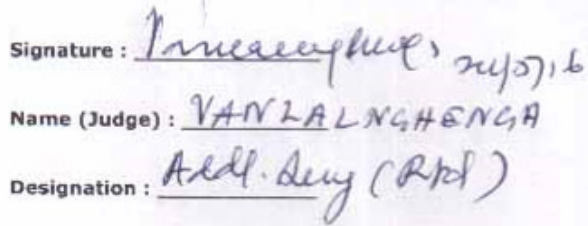 Signature :
Name (Judge) : VANLALNGHENGA
Designation : Addl. Secy (Rtd)